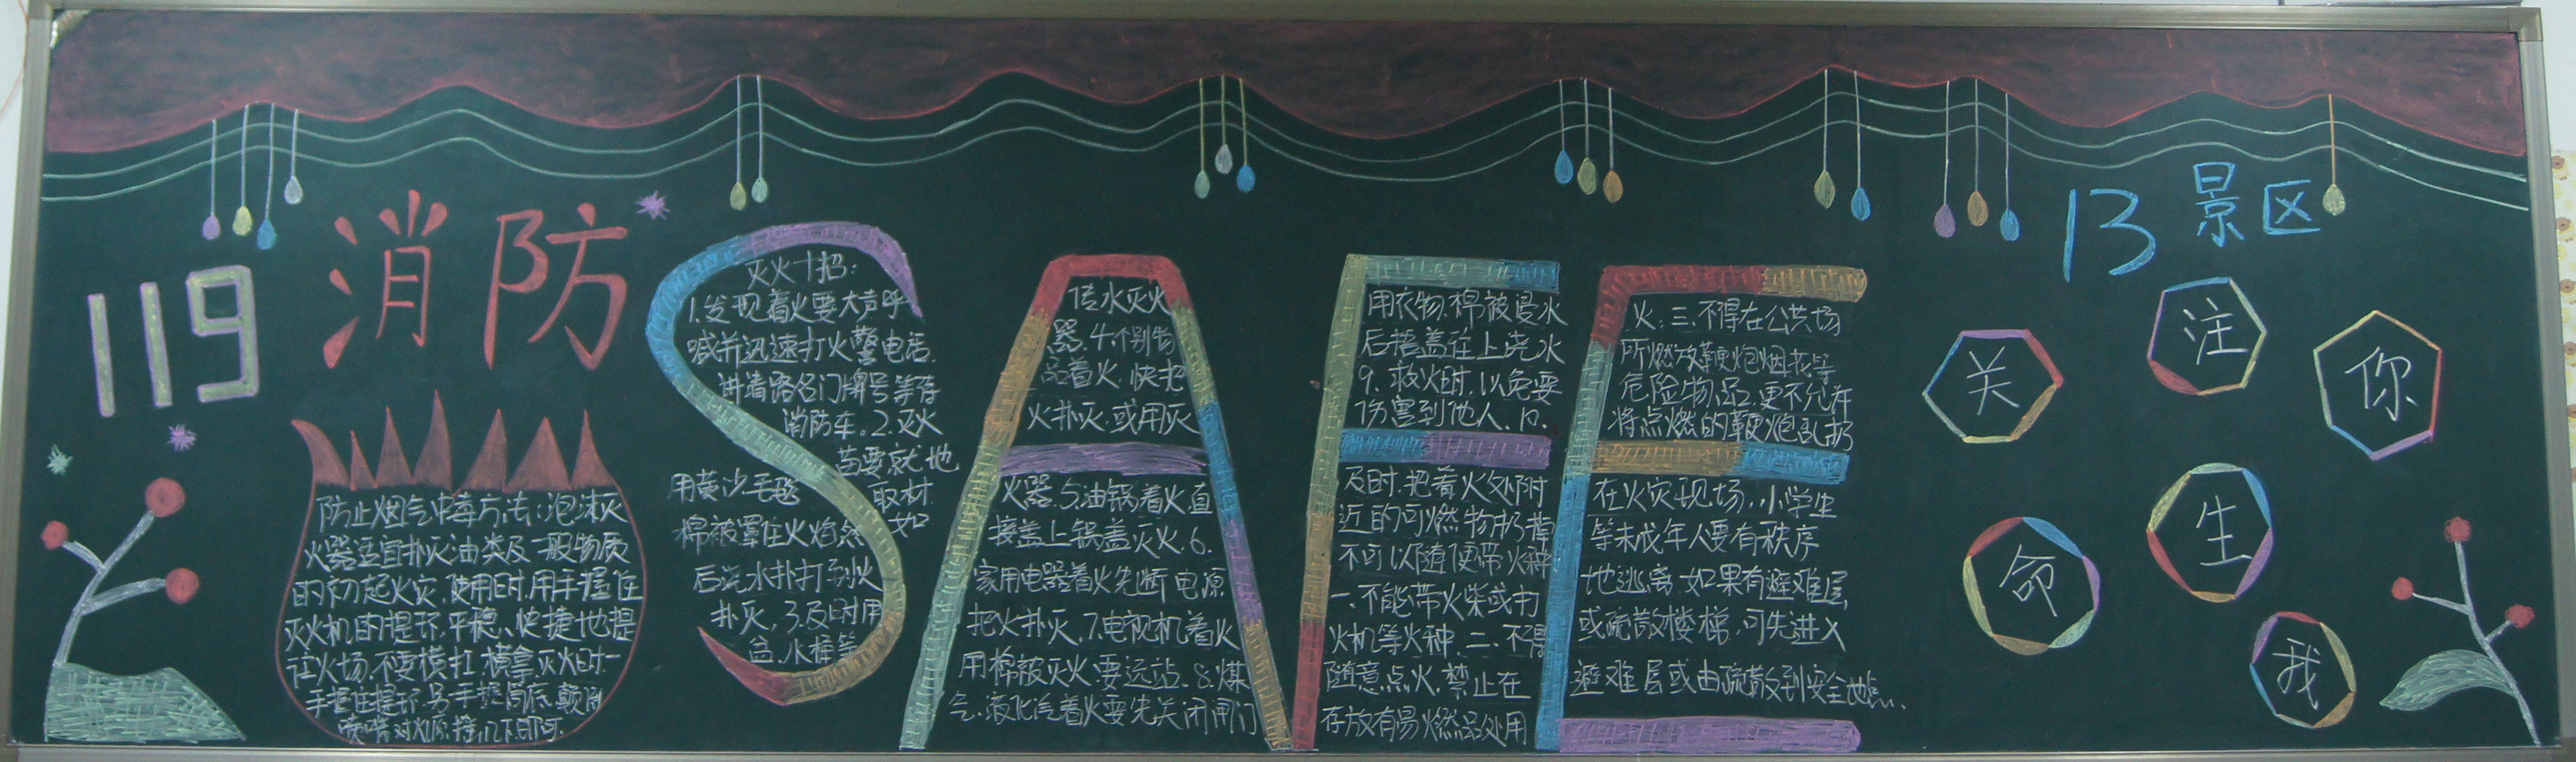 119
消防
防止烟气中毒方法:泡沫灭
火器适宜扑灭油类及一般物质
的初起火灾.使用时.用手握住
灭火机的提环.平稳、快捷地提
往火场.不要横扛.横拿.灭火时一
手握住提环.另一手握筒底.颠倒
喷嘴对火源
SAFE
灭火十招:
1.发现着火要大声呼
喊并迅速打火警电话.
讲清路名门牌号等待
消防车。2.灭火
苗要就地
用黄沙毛毯 取材
棉被罩住火焰然 如
后浇水扑打到火
扑灭,3.及时用
盆.水桶等
传水灭火
器.4.个别物
品着火.快把
火扑灭.或用灭
火器.5.油锅着火直
接盖上锅盖灭火.6.
家用电器着火先断电源
把火扑灭.7.电视机着火
用棉被灭火.要远站.8.煤
气.液化汽着火要先关闭闸门
用衣物.棉被浸水
后捂盖往上浇水
9.救火时.以免要
伤害到他人.10.
及时.把着火处附
近的可燃物扔掉
不可以随便带火种
一.不能带火柴或打
火机等火种.二.不得
随意点火.禁止在
存放有易燃品处用
火:三.不得在公共场
所燃放鞭炮烟花等
危险物品.更不允许
将点燃的鞭炮乱扔
在火灾现场,小学生
等未成年人要有秩序
地逃离.如果有避难层
或疏散楼梯,可先进入
避难层或由疏散到安全地点.
13景区
关
注
你
命
生
我